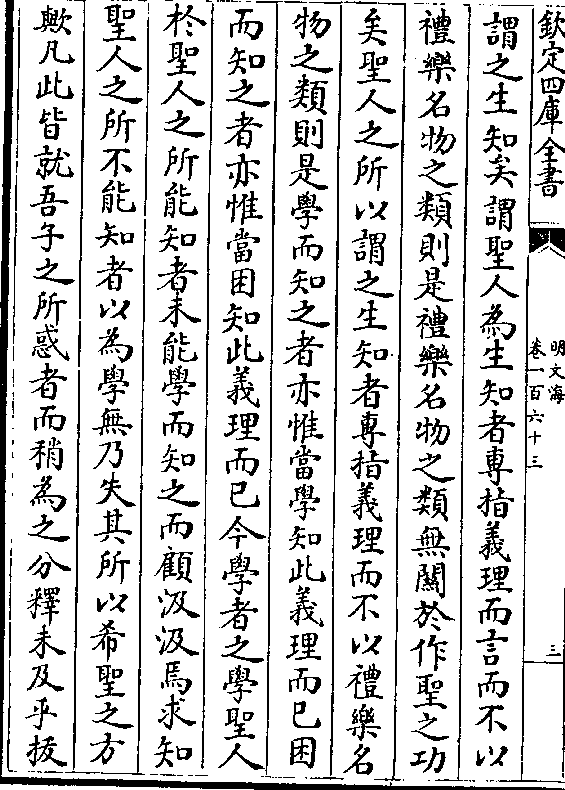 欽定四庫全書
明文海
卷一百六十三
三
謂之生知矣謂聖人為生知者專指義理而言而不以
禮樂名物之類則是禮樂名物之類無關於作聖之功
矣聖人之所以謂之生知者專指義理而不以禮樂名
物之類則是學而知之者亦惟當學知此義理而已困
而知之者亦惟當困知此義理而已今學者之學聖人
於聖人之所能知者未能學而知之而顧汲汲焉求知
聖人之所不能知者以為學無乃失其所以希聖之方
歟凡此皆就吾子之所惑者而稍為之分釋未及乎拔